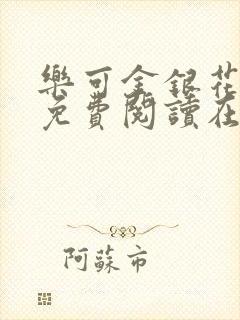 樂可金銀花
免費閱讀在
阿蘇市